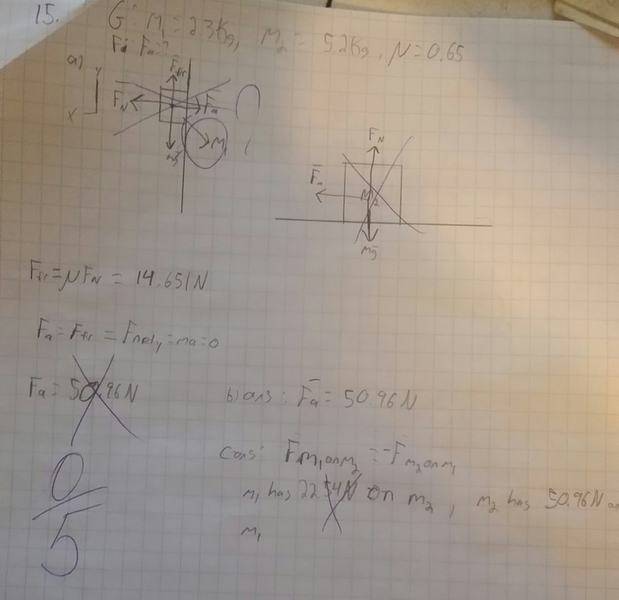 15. G: M₁ = 2.3Kg, M₂ = 5.2Kg, μ = 0.65
F: Fa = ?
a) y
x
Ffr
FN Fa
mg M₁
FN
Fa M₂
mg
Ffr = μFN = 14.651N
Fa = Ffr = Fnety = ma = 0
Fa = 50.96N
b) ans: Fa = 50.96N
Cons: Fm₁onm₂ = -Fm₂onm₁
m₁ has 22.54N on m₂, m₂ has 50.96N on
m₁
0/5